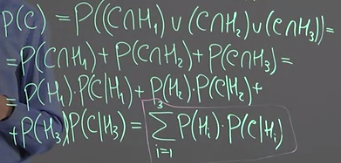 P(C) = P((C∩H₁)∪(C∩H₂)∪(C∩H₃)) =
= P(C∩H₁) + P(C∩H₂) + P(C∩H₃) =
= P(H₁)·P(C|H₁) + P(H₂)·P(C|H₂) +
+ P(H₃)P(C|H₃) = ∑³ᵢ₌₁ P(Hᵢ)·P(C|Hᵢ)